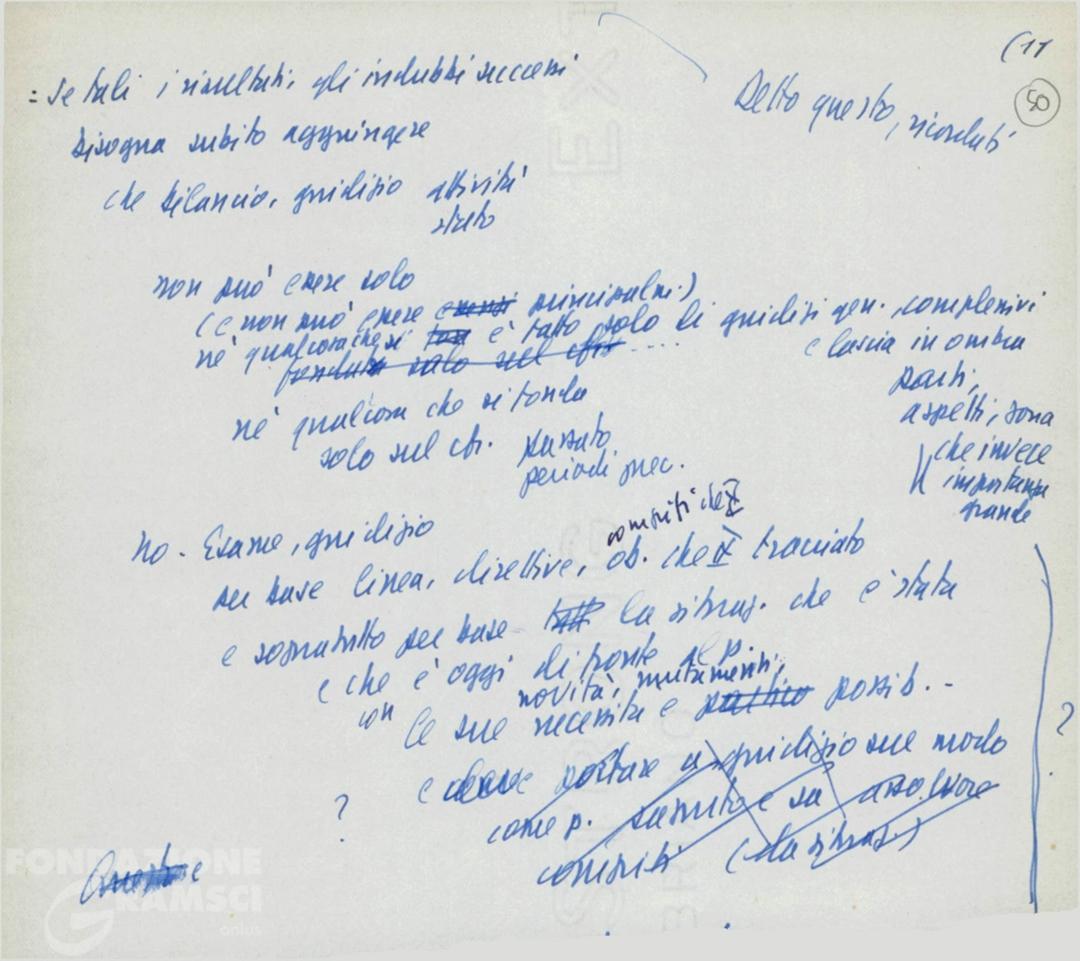 (11
50
Detto questo, ricordati
= Se tali i risultati, gli indubbi successi
bisogna subito aggiungere
che bilancio, giudizio attività
stato
non può essere solo
(e non può essere principalm.)
né qualcosa che si è fatto solo di giudizi gen. complessivi
fondato solo sul
e lascia in ombra
parti,
aspetti, zona
che invece
importanza
grande
né qualcosa che si fonda
solo sul cfr. passato
periodi prec.
No - Esame, giudizio
compiti che X
su base linea, direttive, ob. che IX tracciato
e sopratutto su base la situaz. che è stata
e che è oggi di fronte al p.
con novità, mutamenti,
le sue necessità e possib. ..
e deve portare a giudizio sul modo
come p. e su assolvere
compiti (da situaz.)
?
?
FONDAZIONE
GRAMSCI
onlus